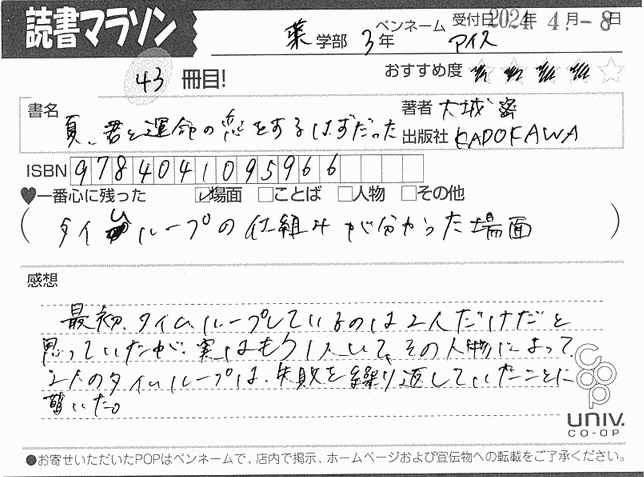 読書マラソン
薬学部 3年 ペンネーム アイス 受付日 2024年 4月-8日
43冊目! おすすめ度
書名 夏、君と運命の恋をするはずだった 著者 大城密
出版社 KADOKAWA
ISBN 9784041095966
♥一番心に残った ☑場面 □ことば □人物 □その他
(タイムループの仕組みが分かった場面)
感想
最初、タイムループしているのは2人だけだと
思っていたが、実はもう1人いて、その人物によって
2人のタイムループは、失敗を繰り返していたことに
驚いた。
coop
UNIV.
CO-OP
●お寄せいただいたPOPはペンネームで、店内で掲示、ホームページおよび宣伝物への転載をご了承ください。